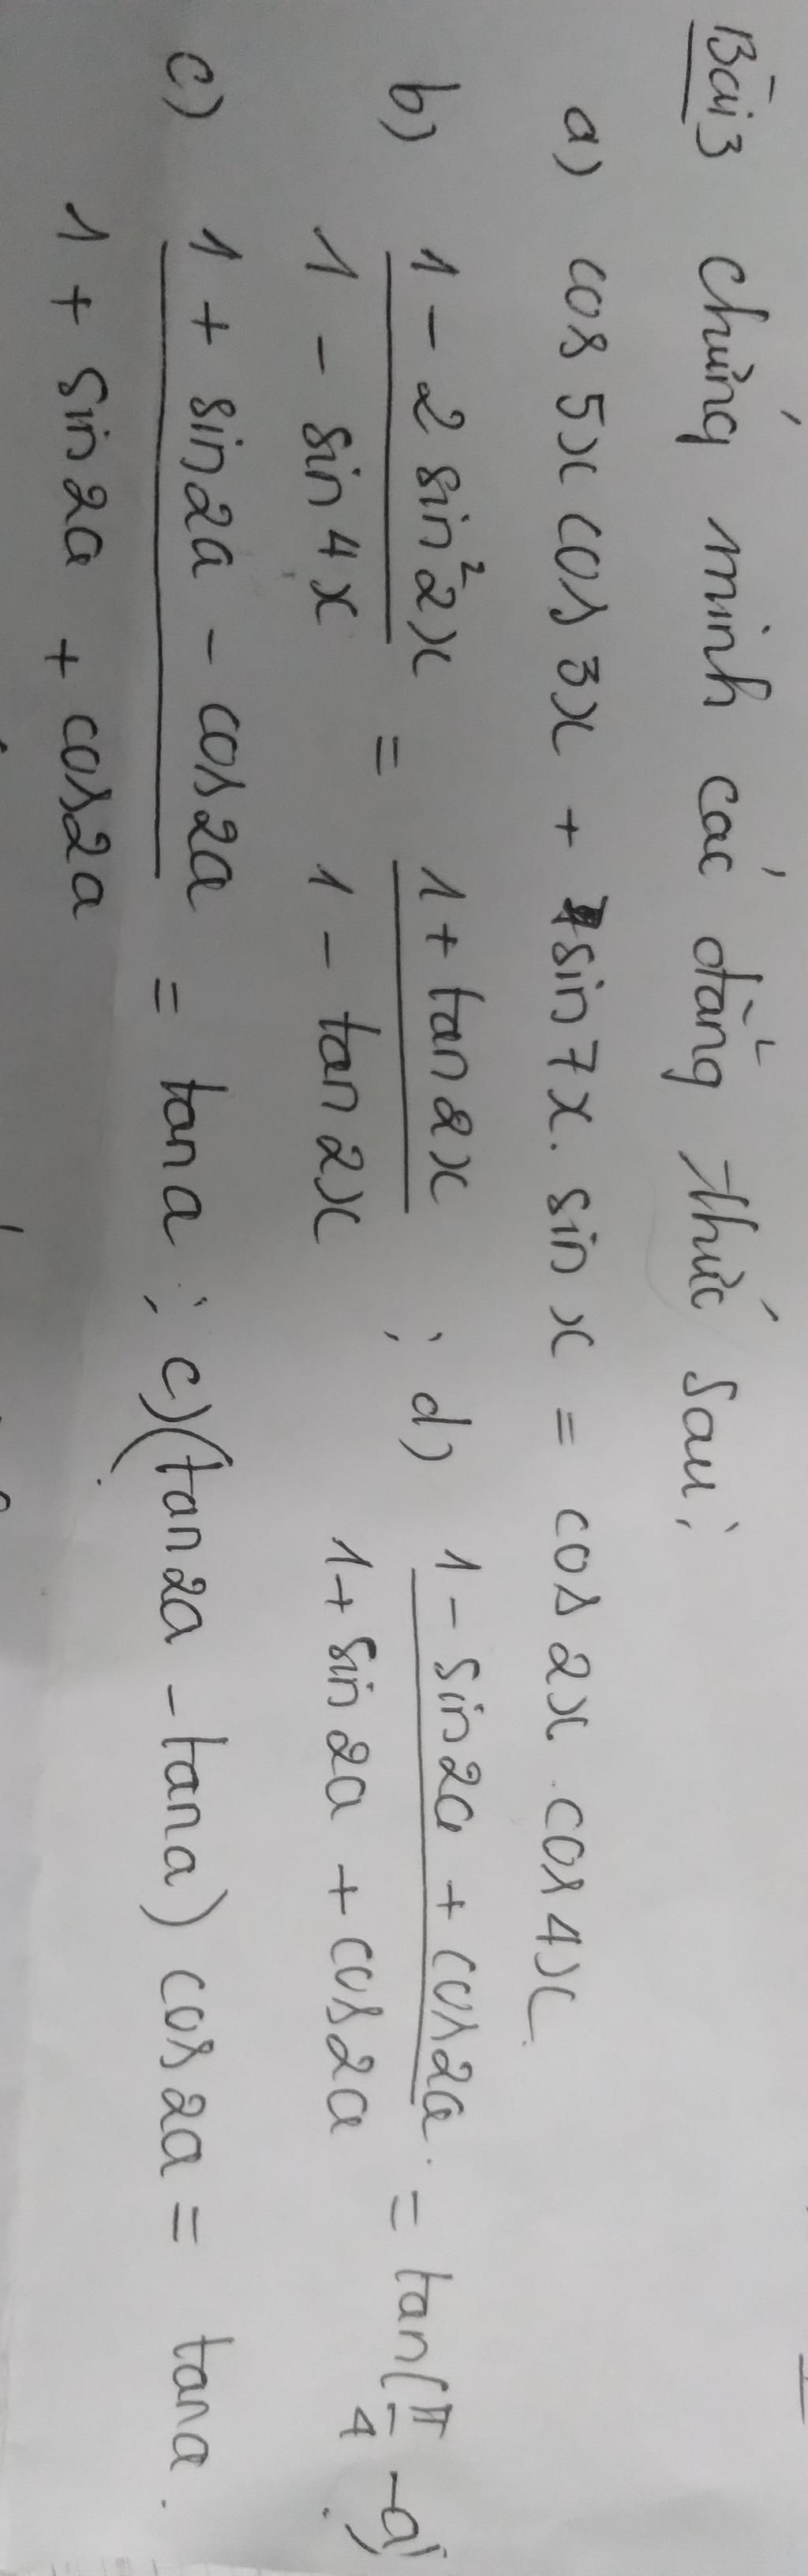 Bài 3 Chứng minh các đẳng thức sau:
a) cos 5x cos 3x + sin 7x. sin x = cos 2x . cos 4x
b) \frac{1 - 2 sin² 2x}{1 - sin 4x} = \frac{1 + tan 2x}{1 - tan 2x} ; d) \frac{1 - sin 2a + cos 2a}{1 + sin 2a + cos 2a} = tan(\frac{π}{4} - a)
c) \frac{1 + sin 2a - cos 2a}{1 + sin 2a + cos 2a} = tan a ; c) (tan 2a - tan a) cos 2a = tan a.